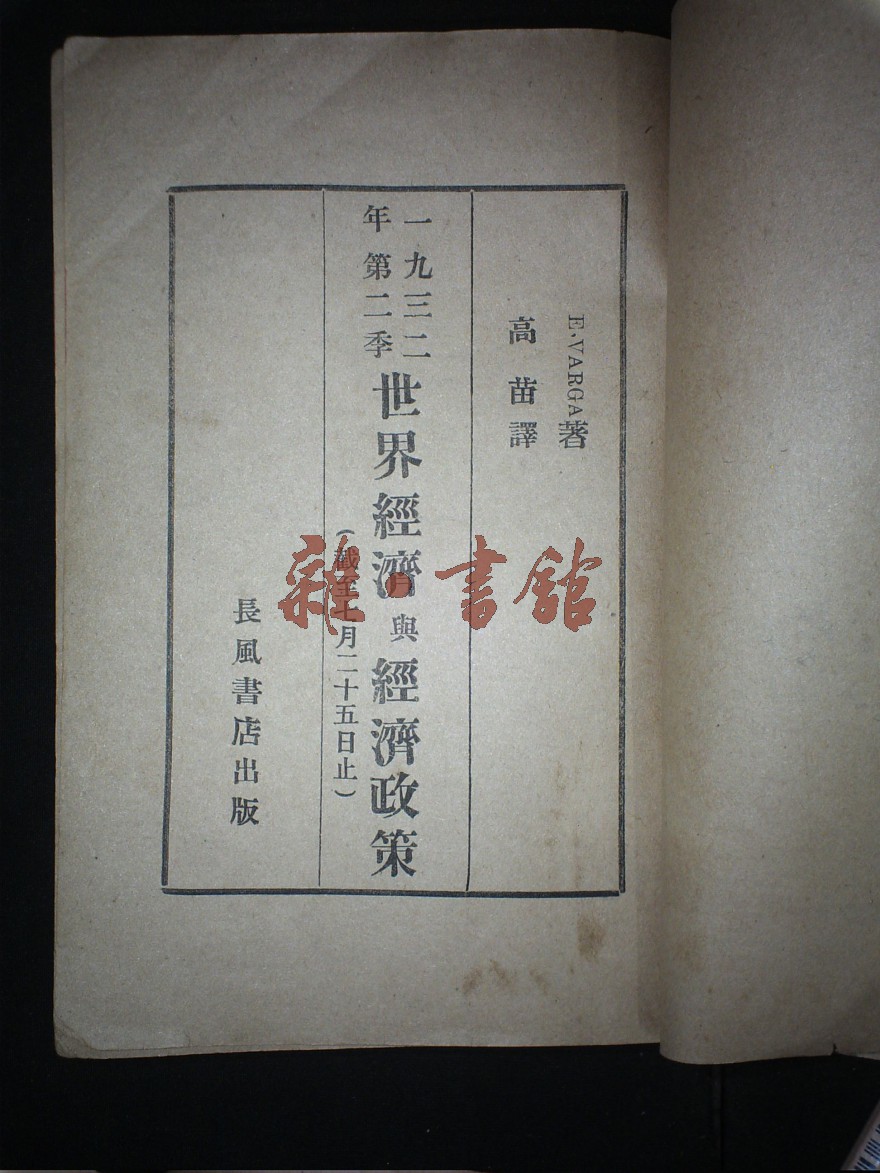 E. VARGA著
高苗譯
一九三二年第二季
世界經濟與經濟政策
(截至七月二十五日止)
長風書店出版
雜·書館